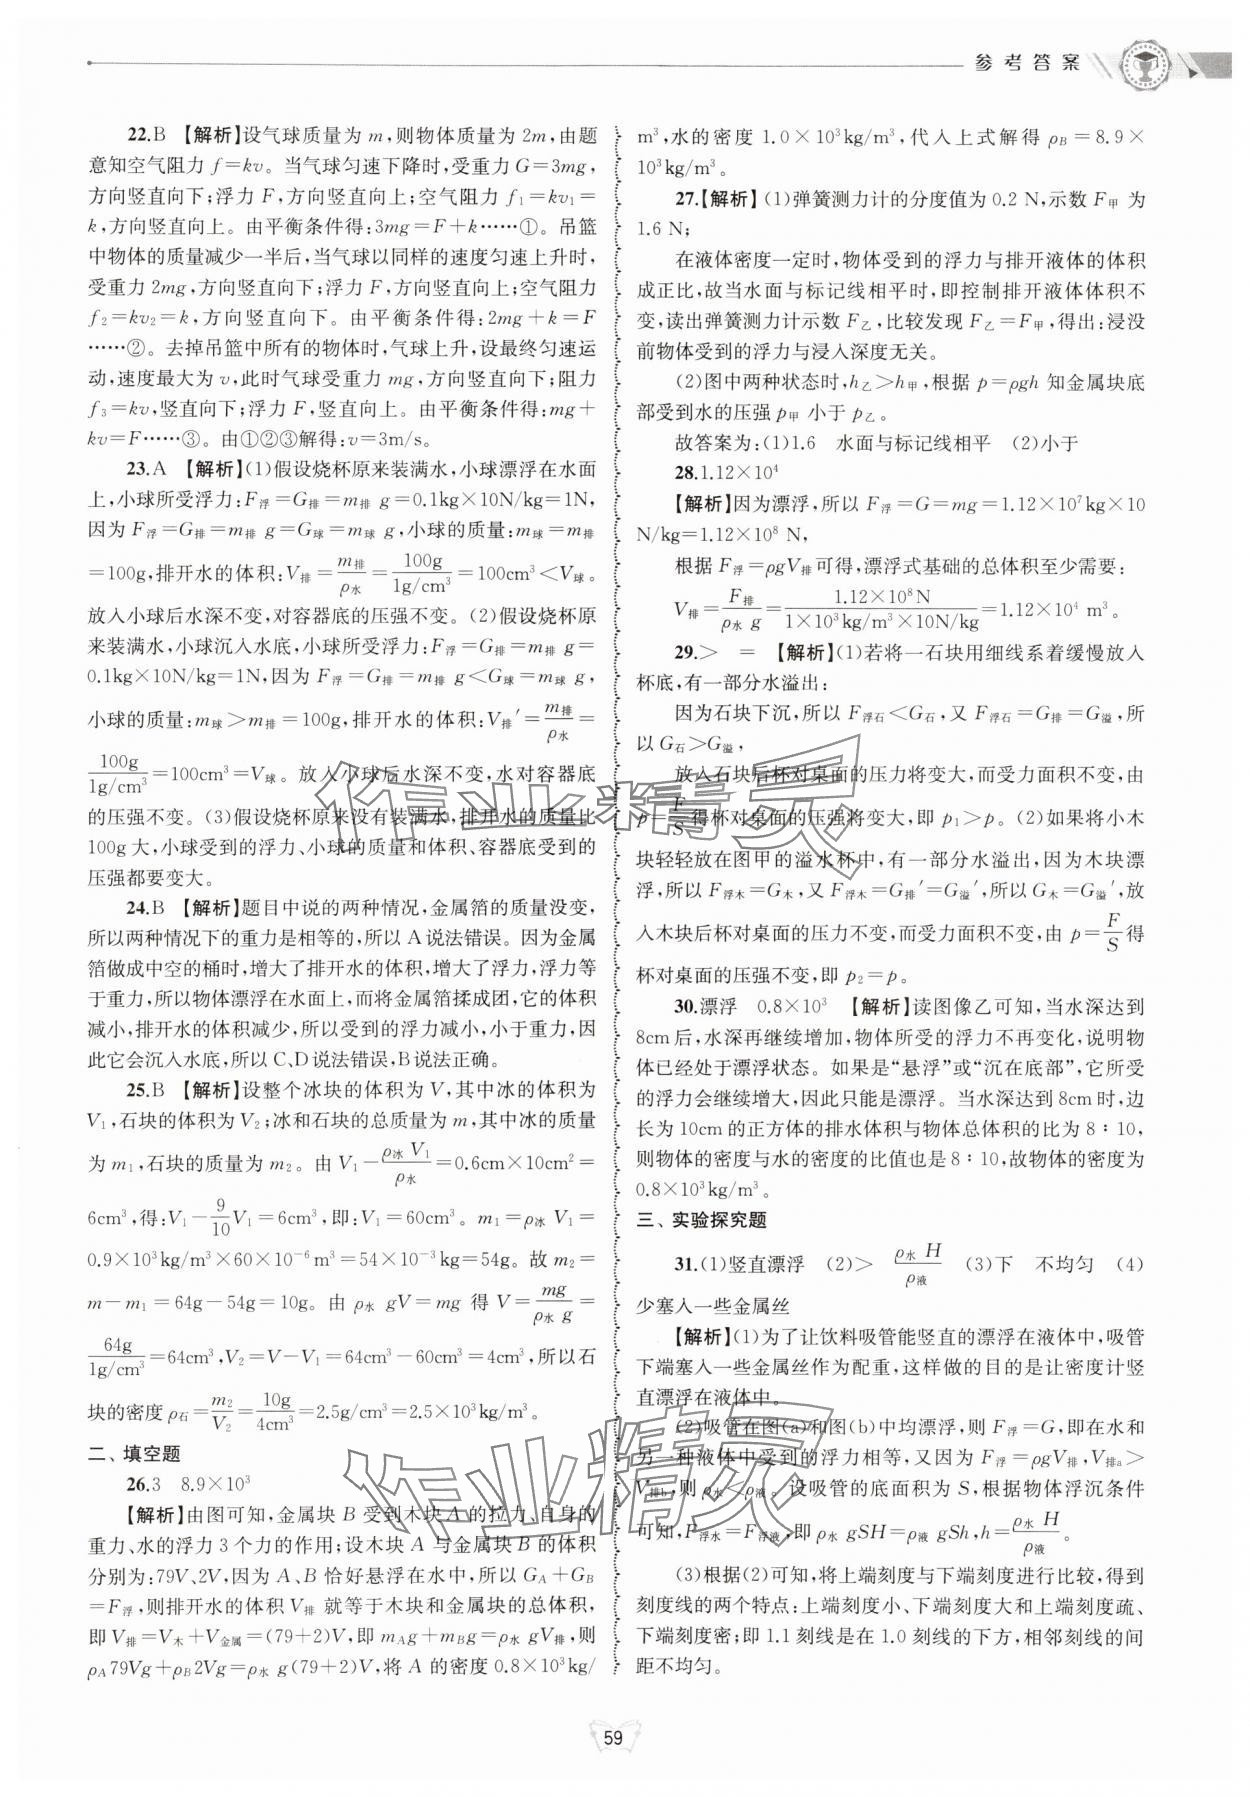 参考答案
22.B 【解析】设气球质量为 m,则物体质量为 2m,由题
意知空气阻力 f=kv。当气球匀速下降时,受重力 G=3mg,
方向竖直向下;浮力 F,方向竖直向上;空气阻力 f₁=kv₁=
k,方向竖直向上。由平衡条件得:3mg=F+k……①。吊篮
中物体的质量减少一半后,当气球以同样的速度匀速上升时,
受重力 2mg,方向竖直向下;浮力 F,方向竖直向上;空气阻力
f₂=kv₂=k,方向竖直向下。由平衡条件得:2mg+k=F
……②。去掉吊篮中所有的物体时,气球上升,设最终匀速运
动,速度最大为 v,此时气球受重力 mg,方向竖直向下;阻力
f₃=kv,竖直向下;浮力 F,竖直向上。由平衡条件得:mg+
kv=F……③。由①②③解得:v=3m/s。
23.A 【解析】(1)假设烧杯原来装满水,小球漂浮在水面
上,小球所受浮力:F浮=G排=m排 g=0.1kg×10N/kg=1N,
因为 F浮=G排=m排 g=G球=m球 g,小球的质量:m球=m排
=100g,排开水的体积:V排=m排/ρ水=100g/1g/cm³=100cm³<V球。
放入小球后水深不变,对容器底的压强不变。(2)假设烧杯原
来装满水,小球沉入水底,小球所受浮力:F浮=G排=m排 g=
0.1kg×10N/kg=1N,因为 F浮=G排=m排 g<G球=m球 g,
小球的质量:m球>m排=100g,排开水的体积:V排′=m排/ρ水=
100g/1g/cm³=100cm³=V球。放入小球后水深不变,水对容器底
的压强不变。(3)假设烧杯原来没有装满水,排开水的质量比
100g 大,小球受到的浮力、小球的质量和体积、容器底受到的
压强都要变大。
24.B 【解析】题目中说的两种情况,金属箔的质量没变,
所以两种情况下的重力是相等的,所以 A 说法错误。因为金属
箔做成中空的桶时,增大了排开水的体积,增大了浮力,浮力等
于重力,所以物体漂浮在水面上,而将金属箔揉成团,它的体积
减小,排开水的体积减少,所以受到的浮力减小,小于重力,因
此它会沉入水底,所以 C、D 说法错误,B 说法正确。
25.B 【解析】设整个冰块的体积为 V,其中冰的体积为
V₁,石块的体积为 V₂;冰和石块的总质量为 m,其中冰的质量
为 m₁,石块的质量为 m₂。由 V₁-ρ冰 V₁/ρ水=0.6cm×10cm²=
6cm³,得:V₁-9/10V₁=6cm³,即:V₁=60cm³。m₁=ρ冰 V₁=
0.9×10³kg/m³×60×10⁻⁶m³=54×10⁻³kg=54g。故 m₂=
m-m₁=64g-54g=10g。由 ρ水 gV=mg 得 V=mg/ρ水 g=
64g/1g/cm³=64cm³,V₂=V-V₁=64cm³-60cm³=4cm³,所以石
块的密度 ρ石=m₂/V₂=10g/4cm³=2.5g/cm³=2.5×10³kg/m³。
二、填空题
26.3 8.9×10³
【解析】由图可知,金属块 B 受到木块 A 的拉力、自身的
重力、水的浮力 3 个力的作用;设木块 A 与金属块 B 的体积
分别为:79V、2V,因为 A、B 恰好悬浮在水中,所以 GA+GB
=F浮,则排开水的体积 V排 就等于木块和金属块的总体积,
即 V排=V木+V金属=(79+2)V,即 mAg+mBg=ρ水 gV排,则
ρA79Vg+ρB2Vg=ρ水 g(79+2)V,将 A 的密度 0.8×10³kg/
m³,水的密度 1.0×10³kg/m³,代入上式解得 ρB=8.9×
10³kg/m³。
27.【解析】(1)弹簧测力计的分度值为 0.2 N,示数 F甲 为
1.6 N;
在液体密度一定时,物体受到的浮力与排开液体的体积
成正比,故当水面与标记线相平时,即控制排开液体体积不
变,读出弹簧测力计示数 F乙,比较发现 F乙=F甲,得出:浸没
前物体受到的浮力与浸入深度无关。
(2)图中两种状态时,h乙>h甲,根据 p=ρgh 知金属块底
部受到水的压强 p甲 小于 p乙。
故答案为:(1)1.6 水面与标记线相平 (2)小于
28.1.12×10⁴
【解析】因为漂浮,所以 F浮=G=mg=1.12×10⁷kg×10
N/kg=1.12×10⁸ N,
根据 F浮=ρgV排可得,漂浮式基础的总体积至少需要:
V排=F排/ρ水 g=1.12×10⁸N/1×10³kg/m³×10N/kg=1.12×10⁴ m³。
29.> = 【解析】(1)若将一石块用细线系着缓慢放入
杯底,有一部分水溢出:
因为石块下沉,所以 F浮石<G石,又 F浮石=G排=G溢,所
以 G石>G溢,
放入石块后杯对桌面的压力将变大,而受力面积不变,由
p=F/S得杯对桌面的压强将变大,即 p₁>p。(2)如果将小木
块轻轻放在图甲的溢水杯中,有一部分水溢出,因为木块漂
浮,所以 F浮木=G木,又 F浮木=G排′=G溢′,所以 G木=G溢′,放
入木块后杯对桌面的压力不变,而受力面积不变,由 p=F/S得
杯对桌面的压强不变,即 p₂=p。
30.漂浮 0.8×10³ 【解析】读图像乙可知,当水深达到
8cm后,水深再继续增加,物体所受的浮力不再变化,说明物
体已经处于漂浮状态。如果是“悬浮”或“沉在底部”,它所受
的浮力会继续增大,因此只能是漂浮。当水深达到8cm时,边
长为 10cm的正方体的排水体积与物体总体积的比为 8∶10,
则物体的密度与水的密度的比值也是 8∶10,故物体的密度为
0.8×10³kg/m³。
三、实验探究题
31.(1)竖直漂浮 (2)> ρ水 H/ρ液 (3)下 不均匀 (4)
少塞入一些金属丝
【解析】(1)为了让饮料吸管能竖直的漂浮在液体中,吸管
下端塞入一些金属丝作为配重,这样做的目的是让密度计竖
直漂浮在液体中。
(2)吸管在图(a)和图(b)中均漂浮,则 F浮=G,即在水和
另一种液体中受到的浮力相等,又因为 F浮=ρgV排,V排a>
V排b,则 ρ水<ρ液。设吸管的底面积为 S,根据物体浮沉条件
可知,F浮水=F浮液,即 ρ水 gSH=ρ液 gSh,h=ρ水 H/ρ液。
(3)根据(2)可知,将上端刻度与下端刻度进行比较,得到
刻度线的两个特点:上端刻度小、下端刻度大和上端刻度疏、
下端刻度密;即 1.1 刻线是在 1.0 刻线的下方,相邻刻线的间
距不均匀。
作业精灵
作业精灵
59